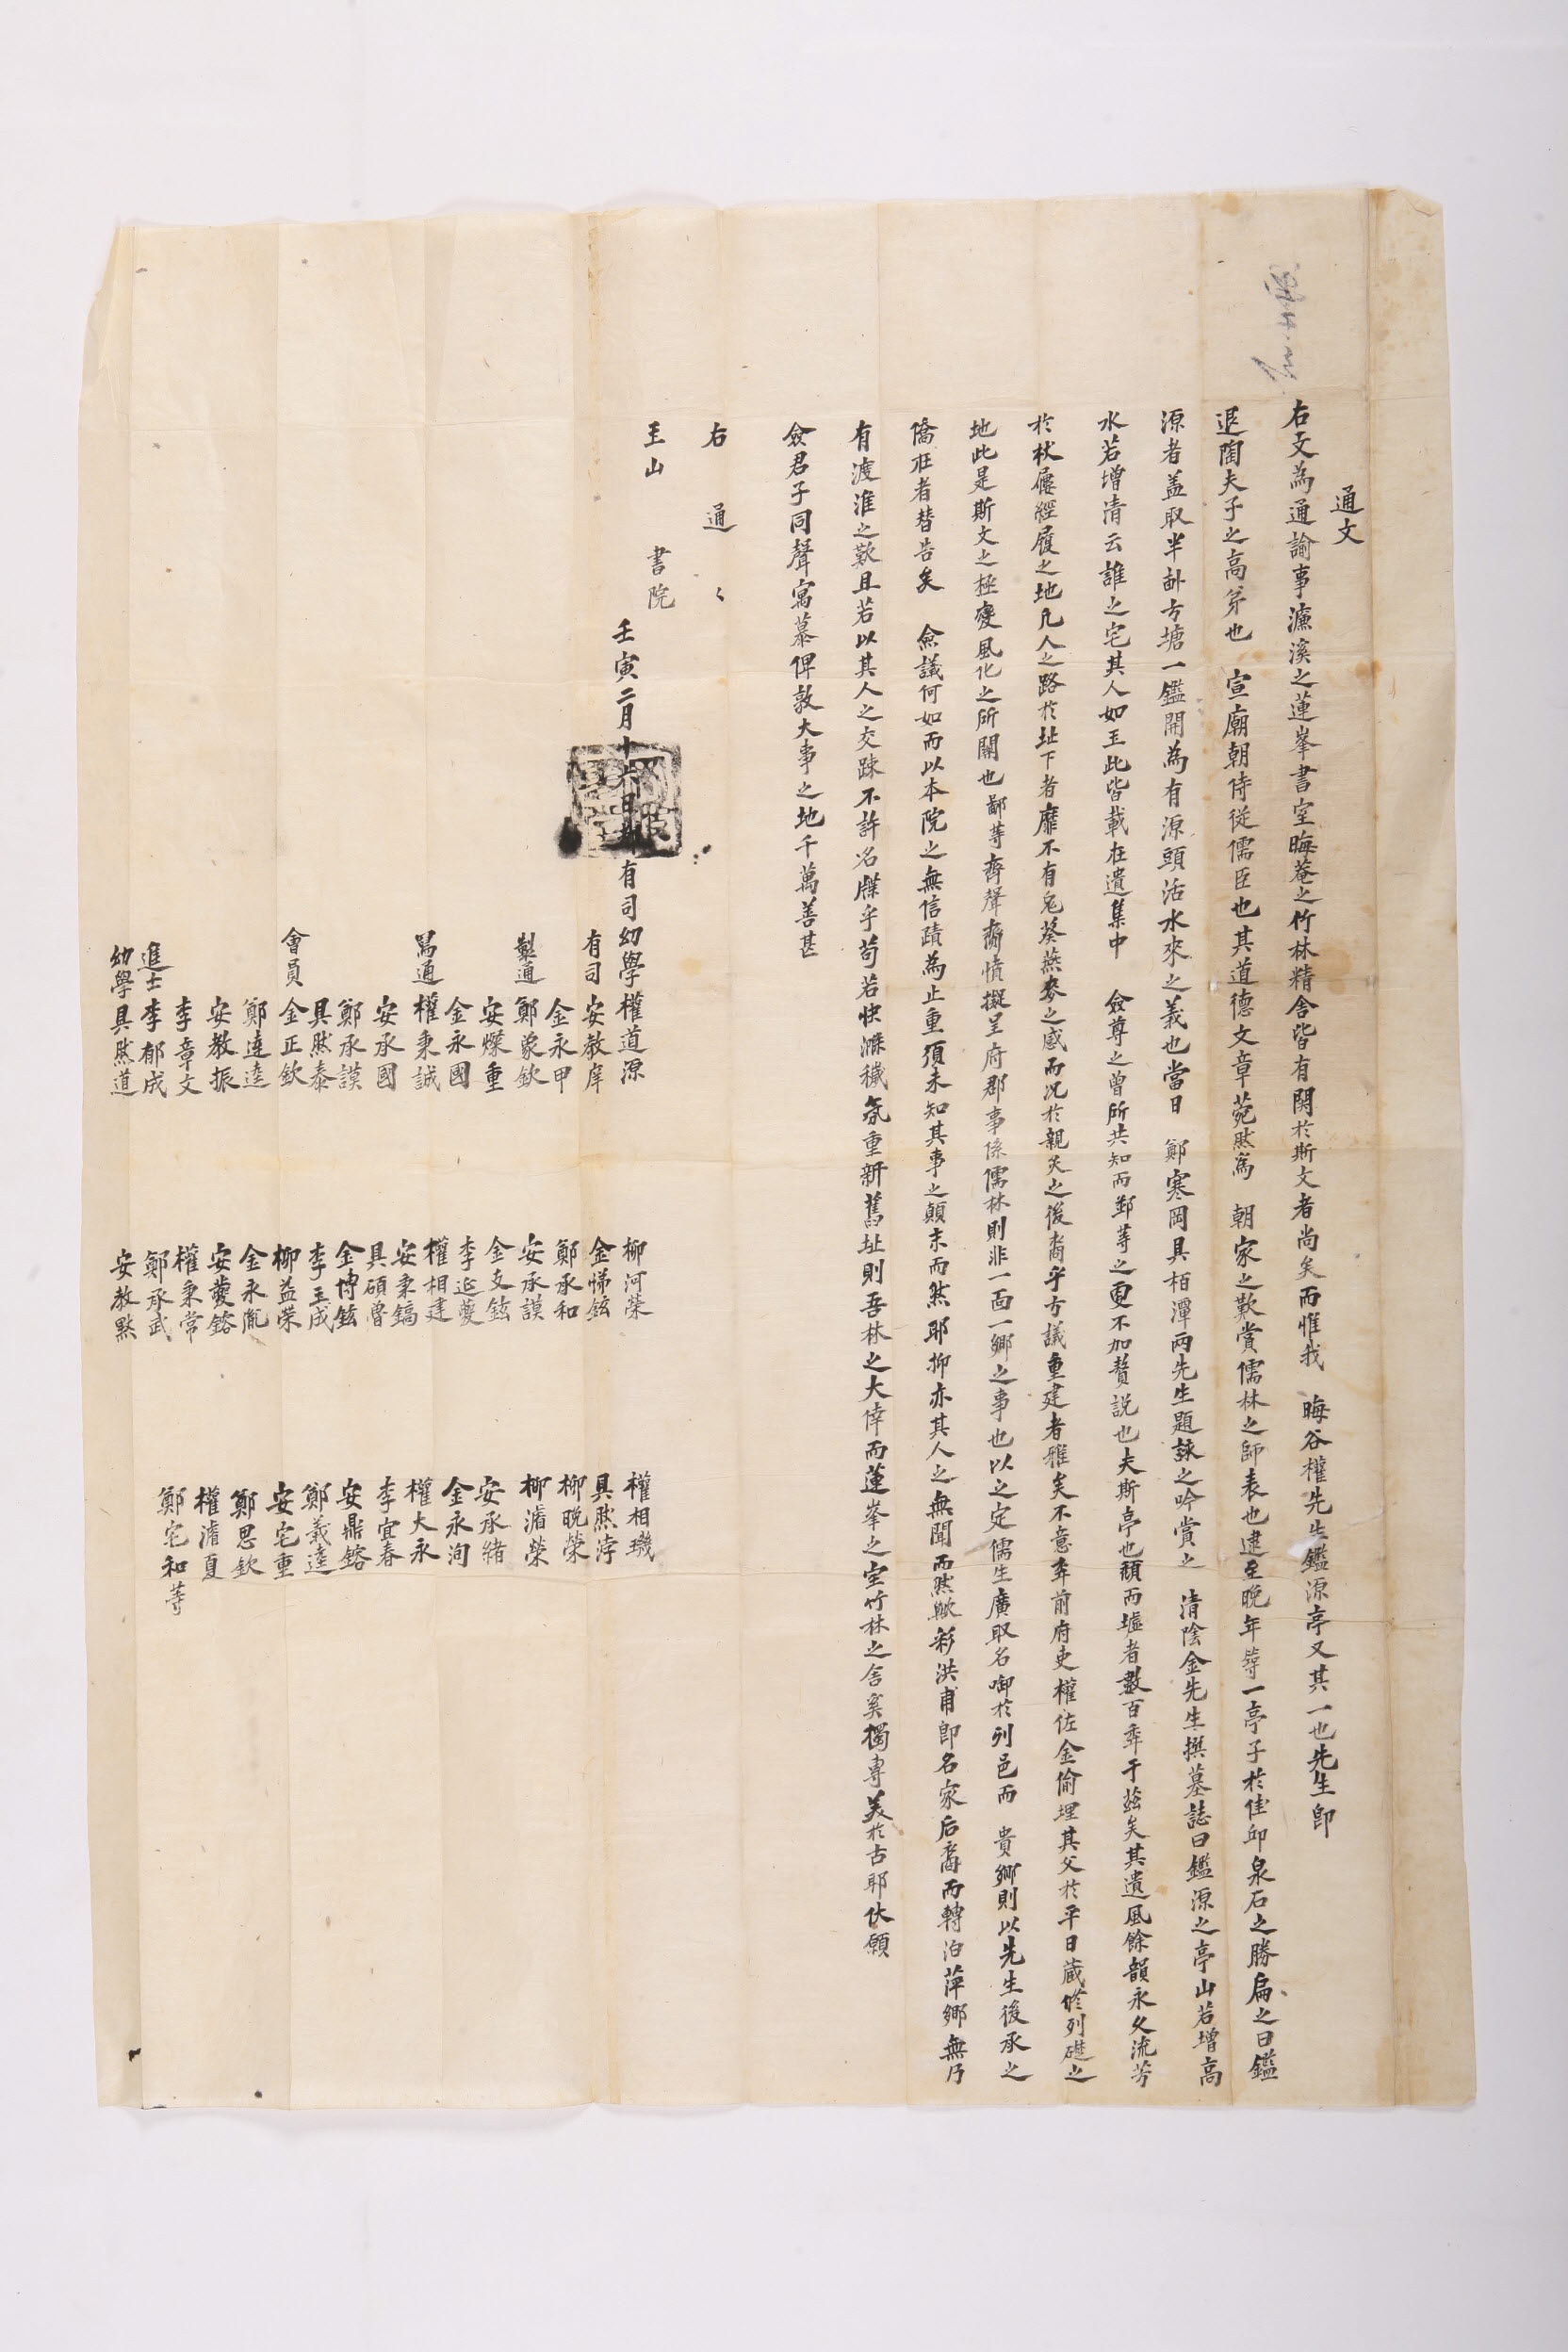 通文
右文為通諭事濂溪之蓮峯書室晦菴之竹林精舍皆有関於斯文者尚矣而惟我 晦谷權先生鑑源亭又其一也先生卽
退陶夫子之高弟也 宣廟朝侍從儒臣也其道德文章菀然為 朝家之歎賞儒林之師表也逮至晚年築一亭子於佳邱泉石之勝扁之曰鑑
源者盖取半畒方塘一鑑開為有源頭活水來之義也當日 鄭寒岡具栢潭兩先生題詠之吟賞之 清陰金先生撰墓誌曰鑑源之亭山若增高
水若增清云誰之宅其人如玉此皆載在遺集中 僉尊之曾所共知而鄙等之更不加贅説也夫斯亭也頹而墟者數百年于玆矣其遺風餘韻永久流芳
於杖屨經履之地凡人之路於址下者靡不有兎葵燕麥之感而况於親炙之後裔乎方議重建者雅矣不意年前府吏權佐金偷埋其父於平日蔵修列礎之
地此是斯文之極變風化之所關也鄙等齊聲齊憤擬呈府郡事係儒林則非一面一鄉之事也以之定儒生廣取名啣於列邑而 貴鄉則以先生後承之
僑在者替告矣 僉議何如而以本院之無信蹟為止重須未知其事之顛末而然耶抑亦其人之無聞而然歟彩洪甫卽名家后裔而轉泊萍鄉無乃
有渡淮之歎且若以其人之交踈不許名牒乎苟若快滌穢氛重新舊址則吾林之大倖而蓮峯之室竹林之舍奚獨專美於古耶伏願
僉君子同聲寓慕俾敦大事之地千萬善甚
右 通 〻
玉山 書院
壬寅二月十六日 有司幼學權道源 柳河榮 權相璣
有司 安教庠 金悌鉉 具然涍
金永甲 鄭承和 柳晩榮
製通 鄭象欽 安承謨 柳濳榮
安燦重 金支鉉 安承緒
金永國 李延夔 金永洵
寫通 權秉誠 權相建 權大永
安承國 安秉鎬 李宜春
鄭承謨 具碩曾 安鼎鎔
具然泰 金博鉉 鄭羲逵
會員 金正欽 李玉成 安宅重
鄭逵逵 柳益榮 鄭思欽
安教振 金永胤 權濳夏
李章文 安夔鎔 鄭宅和等
進士李郁成 權秉常
幼學具然道 鄭承武
安教黙